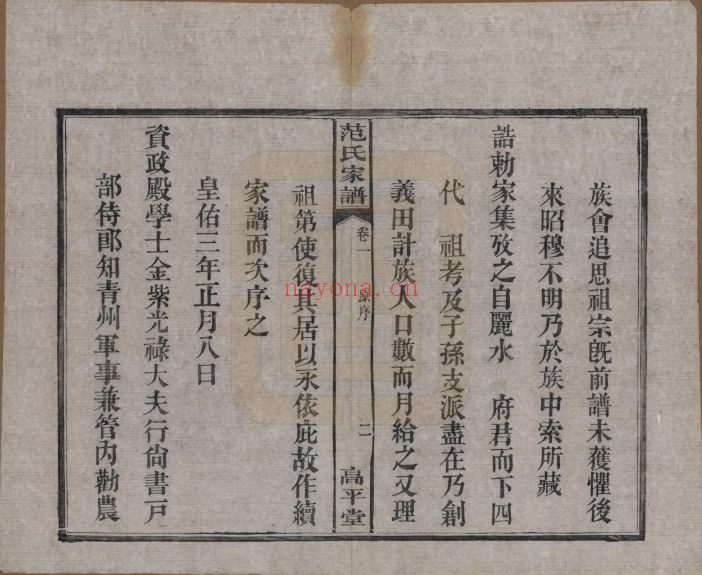 族會追思祖宗旣前譜未獲懼後
來昭穆不明乃於族中索所藏
誥勅家集攷之自麗水　府君而下四
代　祖考及子孫支派盡在乃創
義田計族人口數而月給之又理
范氏家譜
卷一
序
二
高平堂
祖第使復其居以永依庇故作續
家譜而次序之
皇佑三年正月八日
資政殿學士金紫光祿大夫行尙書戸
部侍郎知青州軍事兼管內勸農
nayona.cn